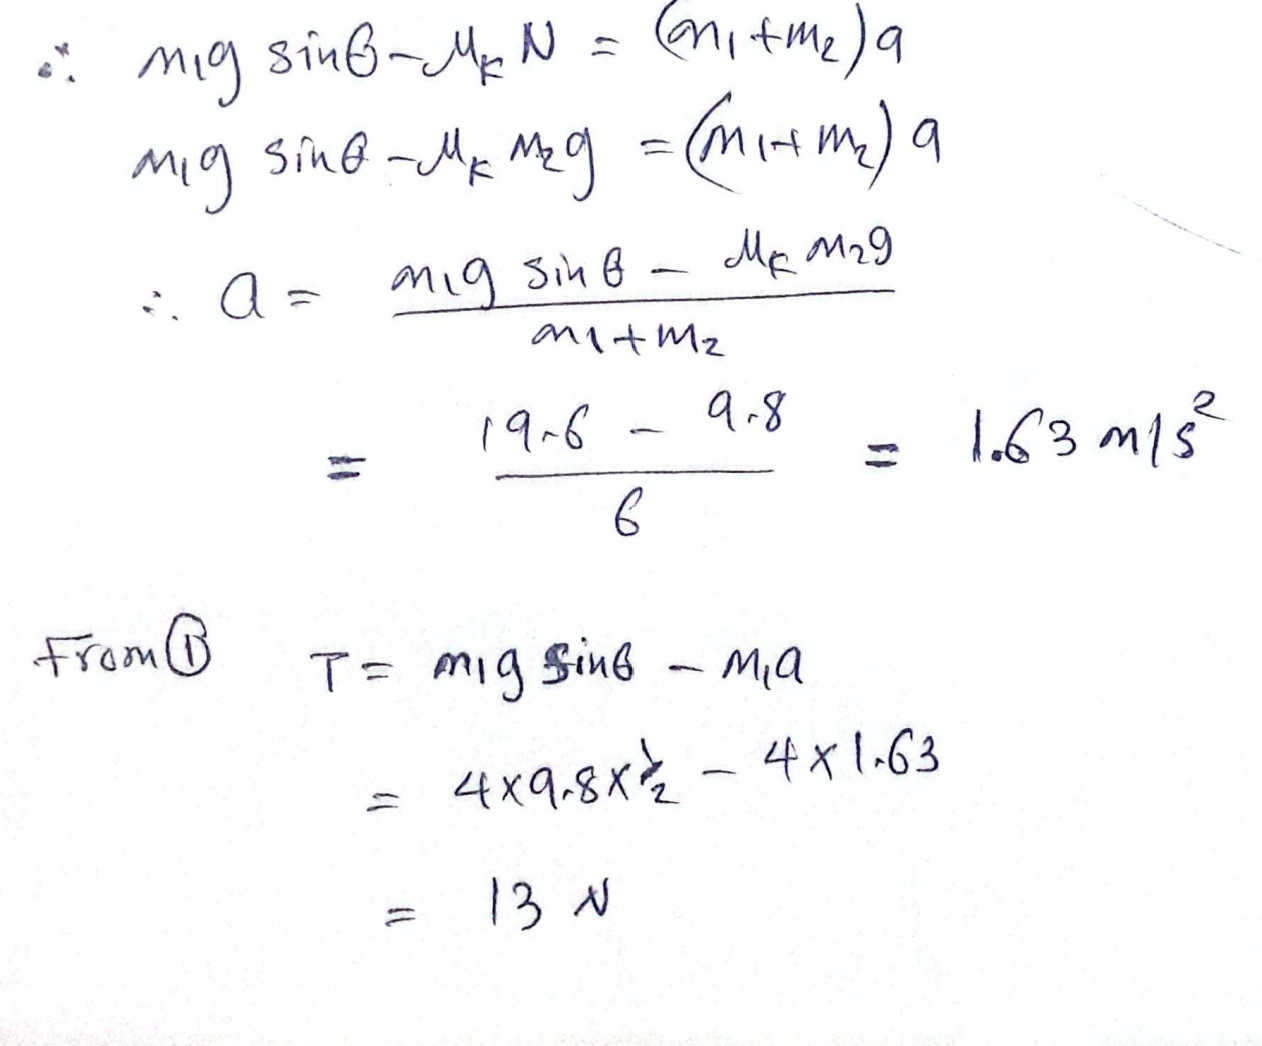 ∴ m₁g sinθ - μₖ N = (m₁+m₂)a
m₁g sinθ - μₖ m₂g = (m₁+m₂) a
∴ a = (m₁g sinθ - μₖ m₂g) / (m₁+m₂)
= (19.6 - 9.8) / 6 = 1.63 m/s²
From ① T = m₁g sinθ - m₁a
= 4×9.8×1/2 - 4×1.63
= 13 N